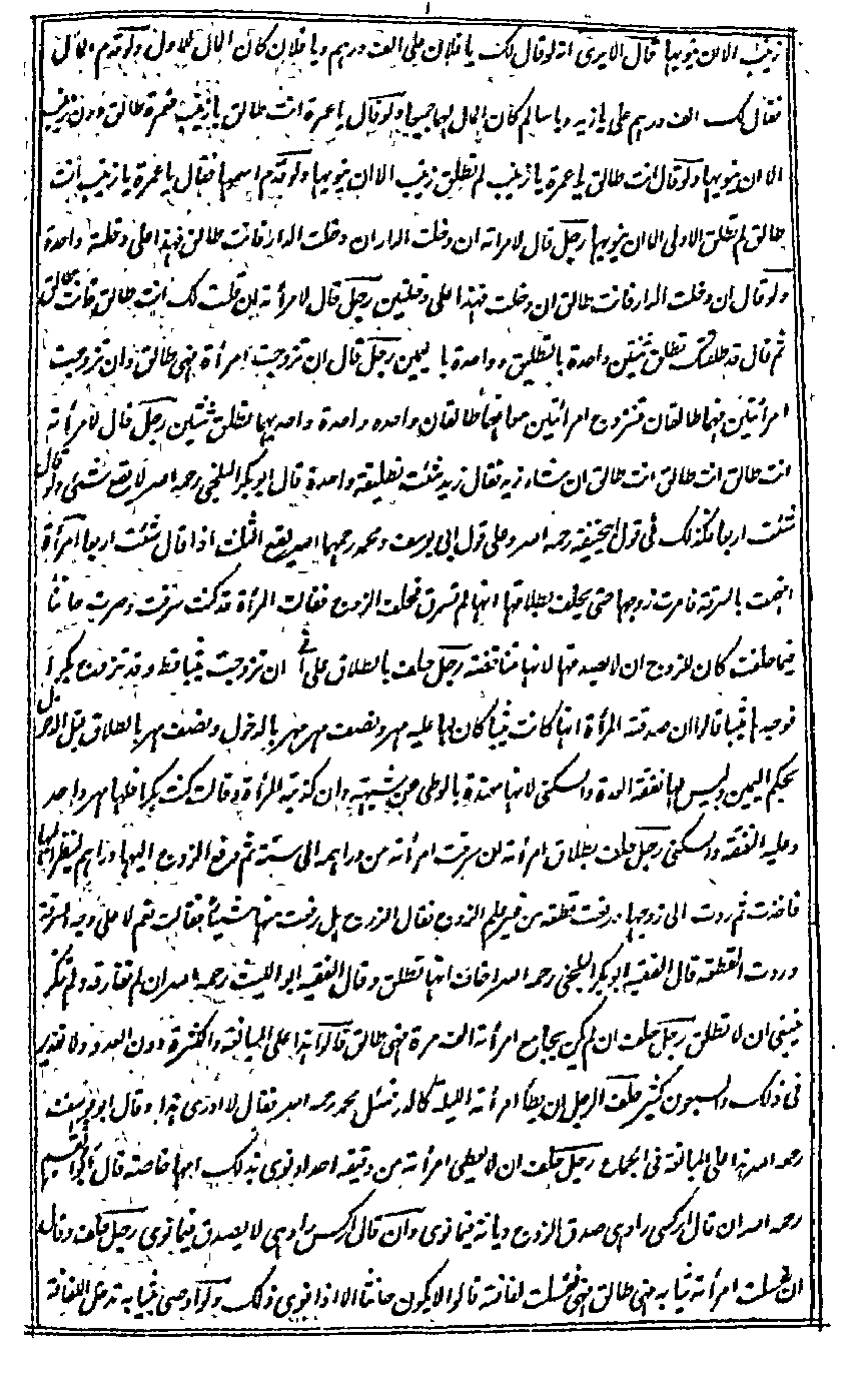 زينب الا ان ينويها قال الا يرى انه لو قال لك يا فلان على الف درهم ويا فلان كان المال للاول ولو قدم المال
فقال لك الف درهم على يا زيد ويا سالم كان المال لهما جميعا ولو قال يا عمرة انت طالق يا زينب فعمرة طالق دون زينب
الا ان ينويها ولو قال انت طالق يا عمرة يا زينب لم تطلق زينب الا ان ينويها ولو قدم اسمهما فقال يا عمرة يا زينب انت
طالق لم تطلق الاولى الا ان ينويها رجل قال لامراته ان دخلت الدار ان دخلت الدار فانت طالق فهذا على دخلة واحدة
ولو قال ان دخلت الدار فانت طالق ان دخلت فهذا على دخلتين رجل قال لامرأته ان قلت لك انت طالق فانت طالق
ثم قال قد طلقتك تطلق ثنتين واحدة بالتطليق وواحدة باليمين رجل قال ان تزوجت امرأة فهى طالق وان تزوجت
امرائتين فهما طالقان فتزوج امرائتين معا فهما طالقان واحدة واحدة واحديهما تطلق ثنتين رجل قال لامرأته
انت طالق انت طالق انت طالق ان شاء زيد فقال زيد شئت تطليقة واحدة قال ابو بكر البلخى رحمه الله لا يقع شئ ولو قال
شئت اربعا فكذلك فى قول ابيحنيفة رحمه الله وعلى قول ابى يوسف ومحمد رحمهما الله يقع الثلث اذا قال شئت اربعا امرأة
اتهمت بالسرقة فامرت زوجها حتى يحلف بطلاقها انها لم تسرق فحلف الزوج فقالت المرأة قد كنت سرقت وصرت حانثا
فيما حلفت كان للزوج ان لا يصدقها لانها متناقضة رجل حلف بالطلاق على انه ان تزوجت ثيبا قط وقد تزوج بكرا
فوجدها ثيبا قالوا ان صدقته المرأة انها كانت ثيبا كان لها عليه مهر ونصف مهر مهر بالدخول ونصف مهر بالطلاق قبل الدخول
بحكم اليمين وليس لها نفقة العدة والسكنى لانها معتدة بالوطى عن شبهة وان كذبته المرأة وقالت كنت بكرا فلها مهر واحد
وعليه النفقة والسكنى رجل حلف بطلاق امرأته ان سرقت امرأته من دراهمه الى سنة ثم دفع الزوج اليها دراهم لينظر اليها
فاخذت ثم ردت الى زوجها ورفعت قطعة من غير علم الزوج فقال الزوج هل رفعت منها شيئا فقالت نعم لا على وجه السرقة
وردت القطعة قال الفقيه ابو بكر البلخى رحمه الله اخاف انها تطلق وقال الفقيه ابو الليث رحمه الله ان لم تفارقه ولم تنكر
فينبغى ان لا تطلق رجل حلف ان لم يكن يجامع امرأته الف مرة فهى طالق قالوا هذا على المبالغة والكثرة دون العدد ولا تقدير
فى ذلك والسبعون كثير حلف الرجل ان يطأ امرأته الليلة فسئل محمد رحمه الله فقال لا ادرى هذا وقال ابو يوسف
رحمه الله هذا على المبالغة فى الجماع رجل حلف ان لا يعطى امرأته من دقيقه احدا ونوى بذلك امها خاصة قال ابو القسيم
رحمه الله ان قال صدق الزوج ديانة فيما نوى وان قال لا يصدق فيما نوى رجل حلف وقال
ان غسلت امرأته ثيابه فهى طالق فغسلت لفافة قالوا لا يكون حانثا الا اذا نوى ذلك ولو اوصى بثيابه تدخل اللفافة